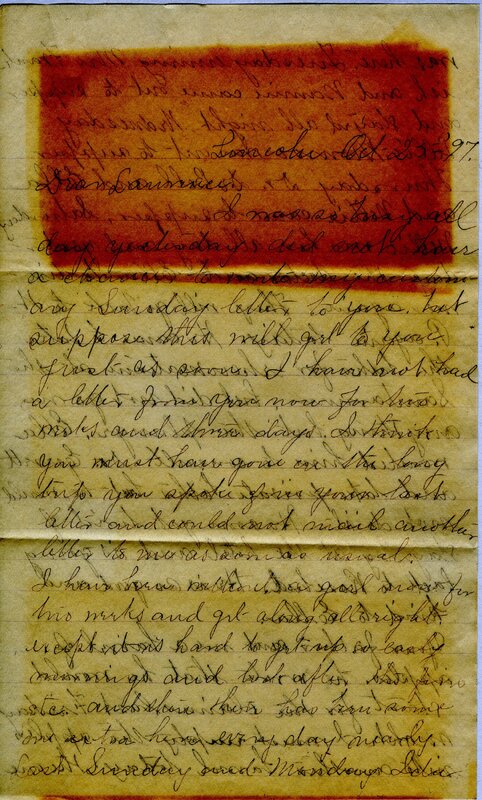 Lincoln Oct 25 - 97.
Dear Lawrence:
I was so busy all
day yesterday I did not have
a chance to write my custom
ary Sunday letter to you, but
suppose this will get to you
just as soon. I have not had
a letter from you now for two
weeks and three days. I think
you must have gone on the long
trip you spoke of in your last
letter and could not mail another
letter to me as soon as usual.
I have been without a girl now for
two weeks and get along all right
except it is hard to get up so early
mornings and look after
etc. and then there has been some
one extra here every day nearly.
Last Sunday and Monday Julia